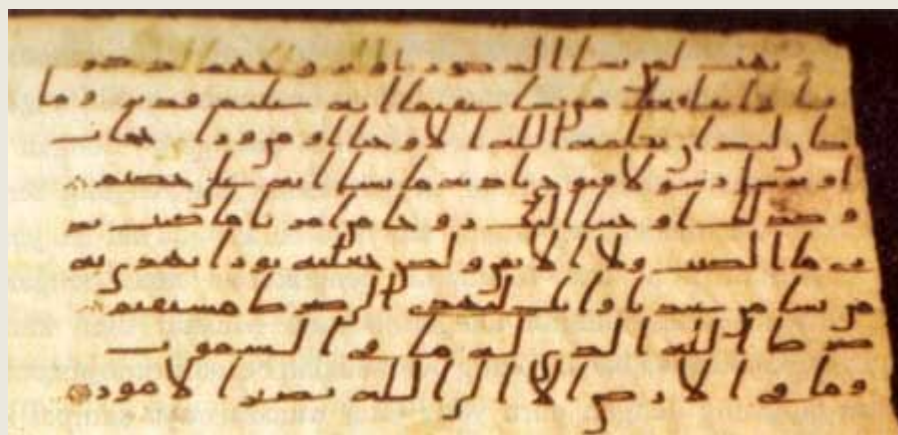 يهب لمن يشا الذكور او يزوجهم ذكر
نا وانثا ويجعل من يشا عقيما انه عليم قدير وما
كان لبشر ان يكلمه الله الا وحيا او من ورا حجاب
او يرسل رسولا فيوحي باذنه ما يشا انه علي حكيم
وكذلك اوحينا اليك روحا من امرنا ما كنت تد
ري ما الكتب ولا الايمن ولكن جعلنه نورا نهدي به
من نشا من عبدنا وانك لتهدي الى صرط مستقيم
صرط الله الذي له ما في السموت
وما في الارض الا الى الله تصير الامور